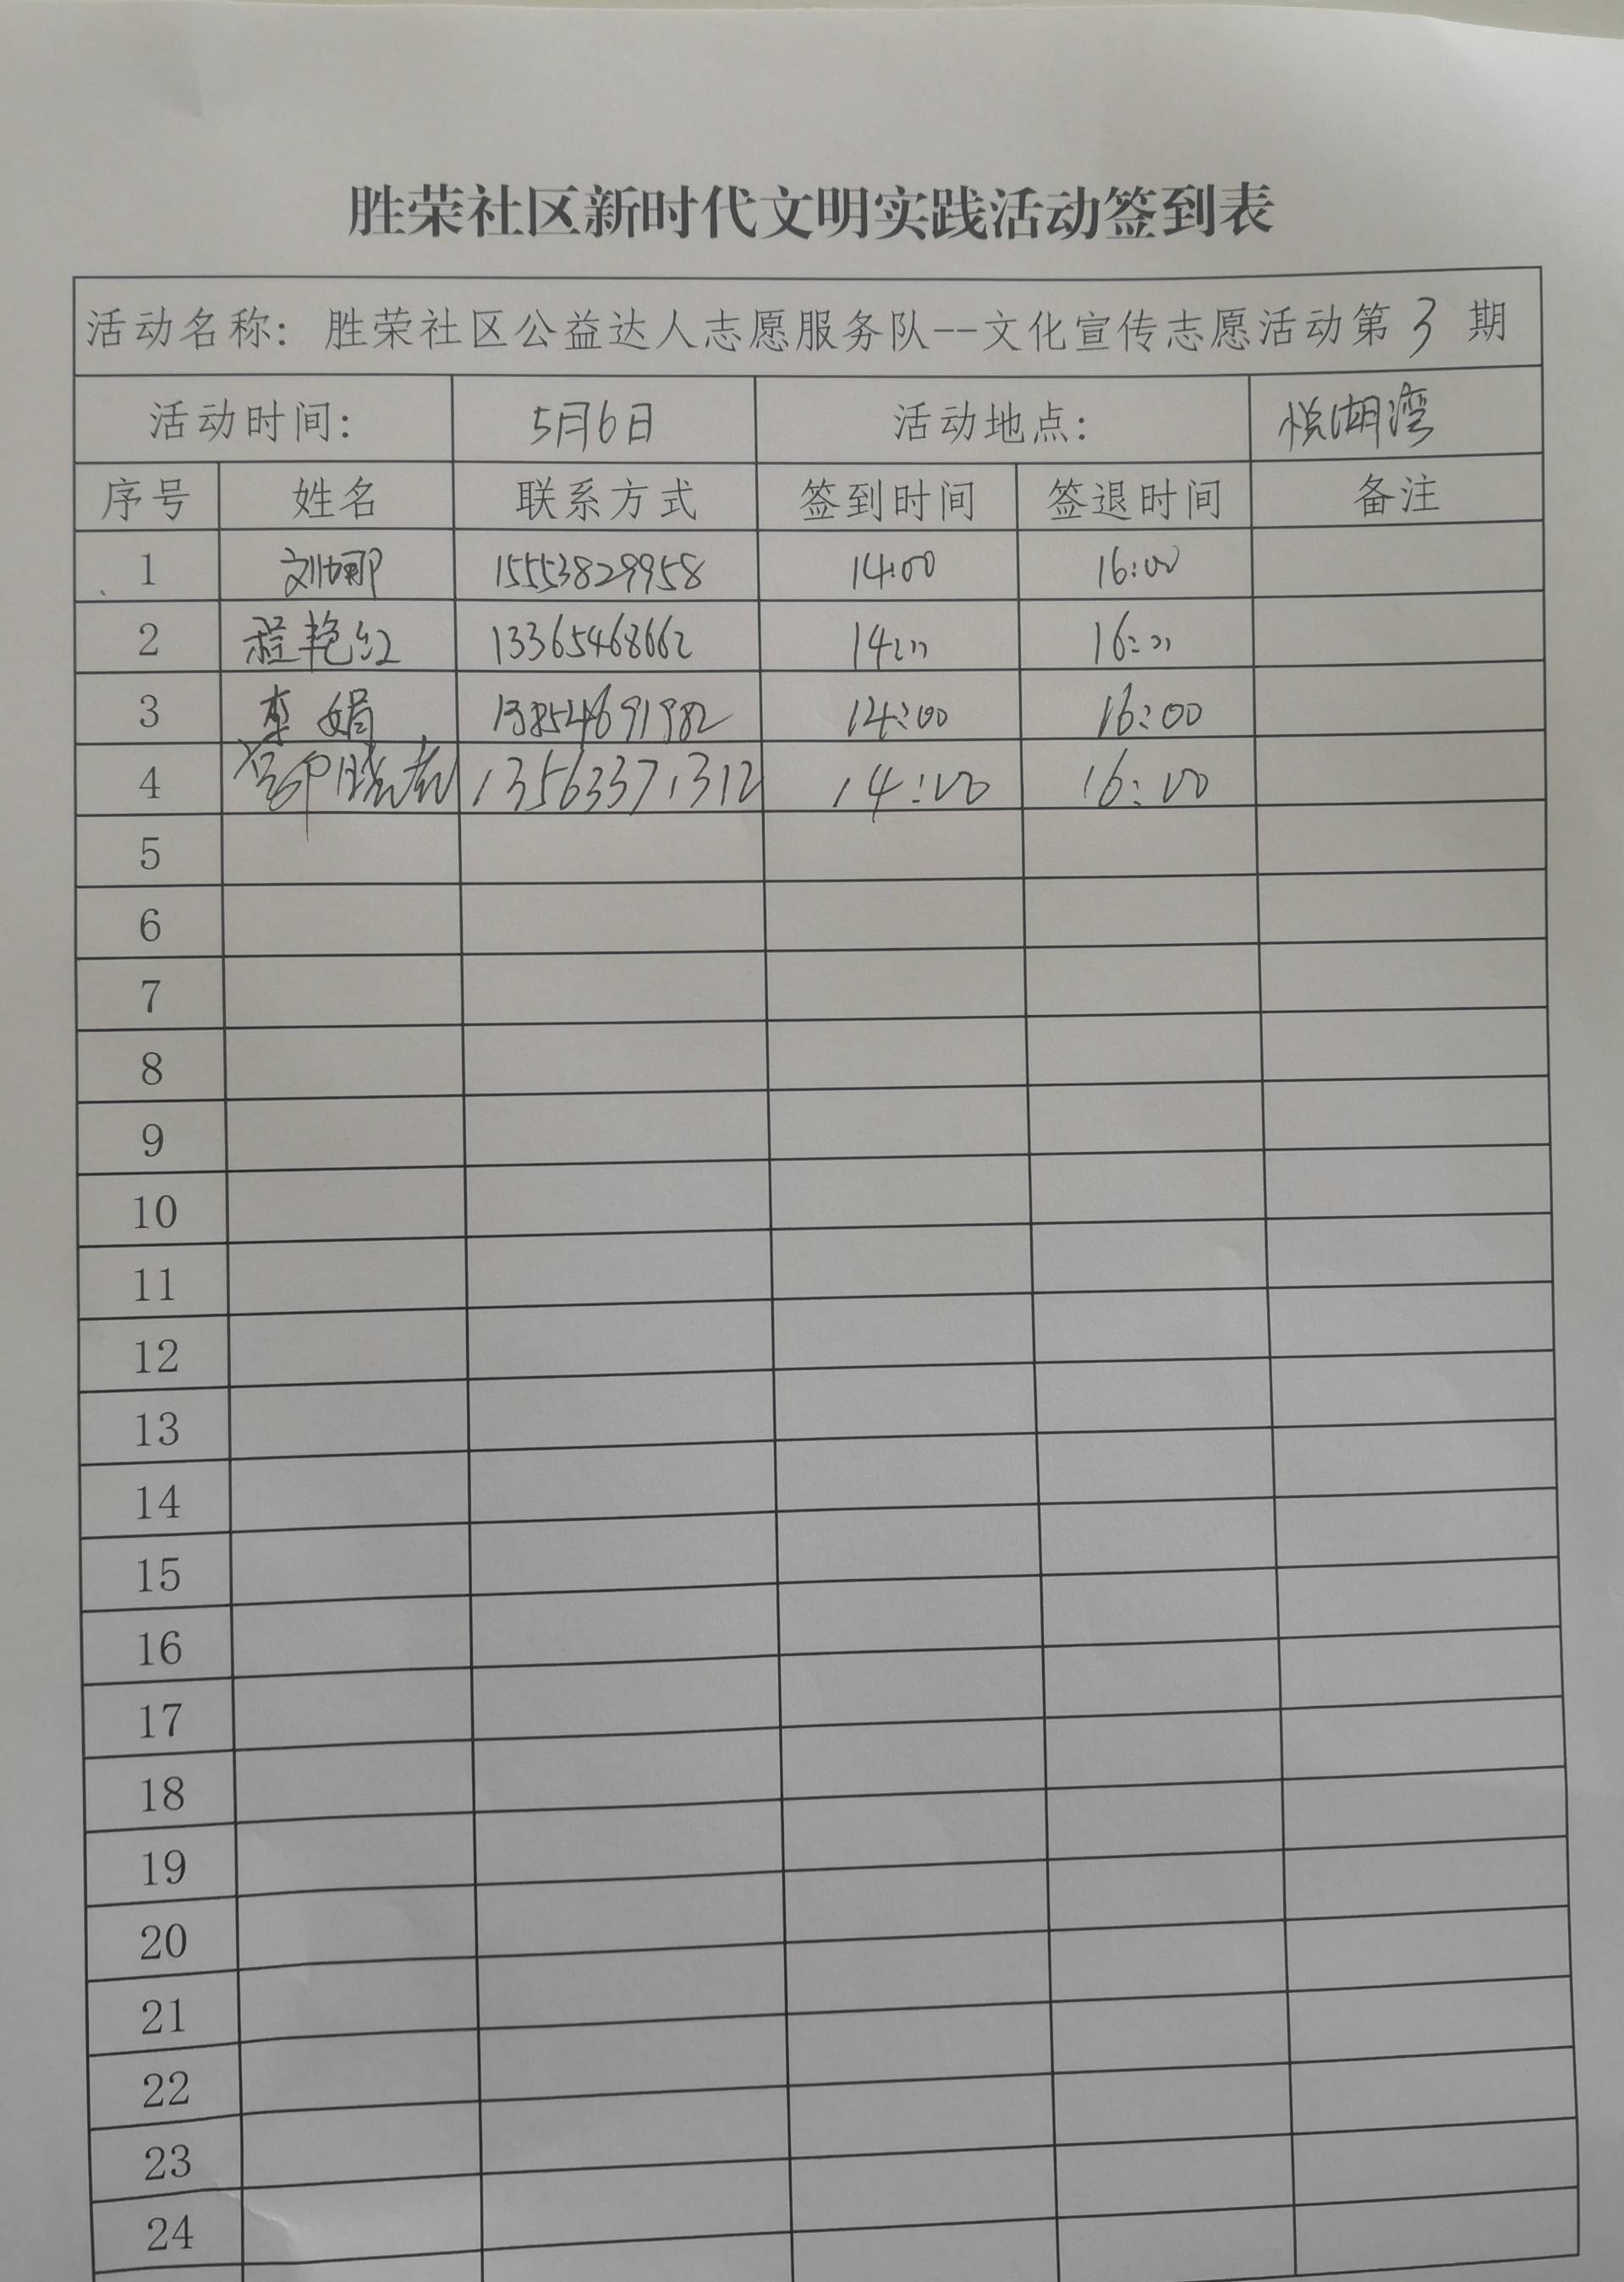 胜荣社区新时代文明实践活动签到表
活动名称：胜荣社区公益达人志愿服务队--文化宣传志愿活动第3期
活动时间： 5月6日 活动地点： 悦湖湾
序号 姓名 联系方式 签到时间 签退时间 备注
1 刘娜 15553829958 14:00 16:00
2 程艳红 13365468662 14:00 16:00
3 李娟 13854691982 14:00 16:00
4 13563371312 14:00 16:00
5
6
7
8
9
10
11
12
13
14
15
16
17
18
19
20
21
22
23
24